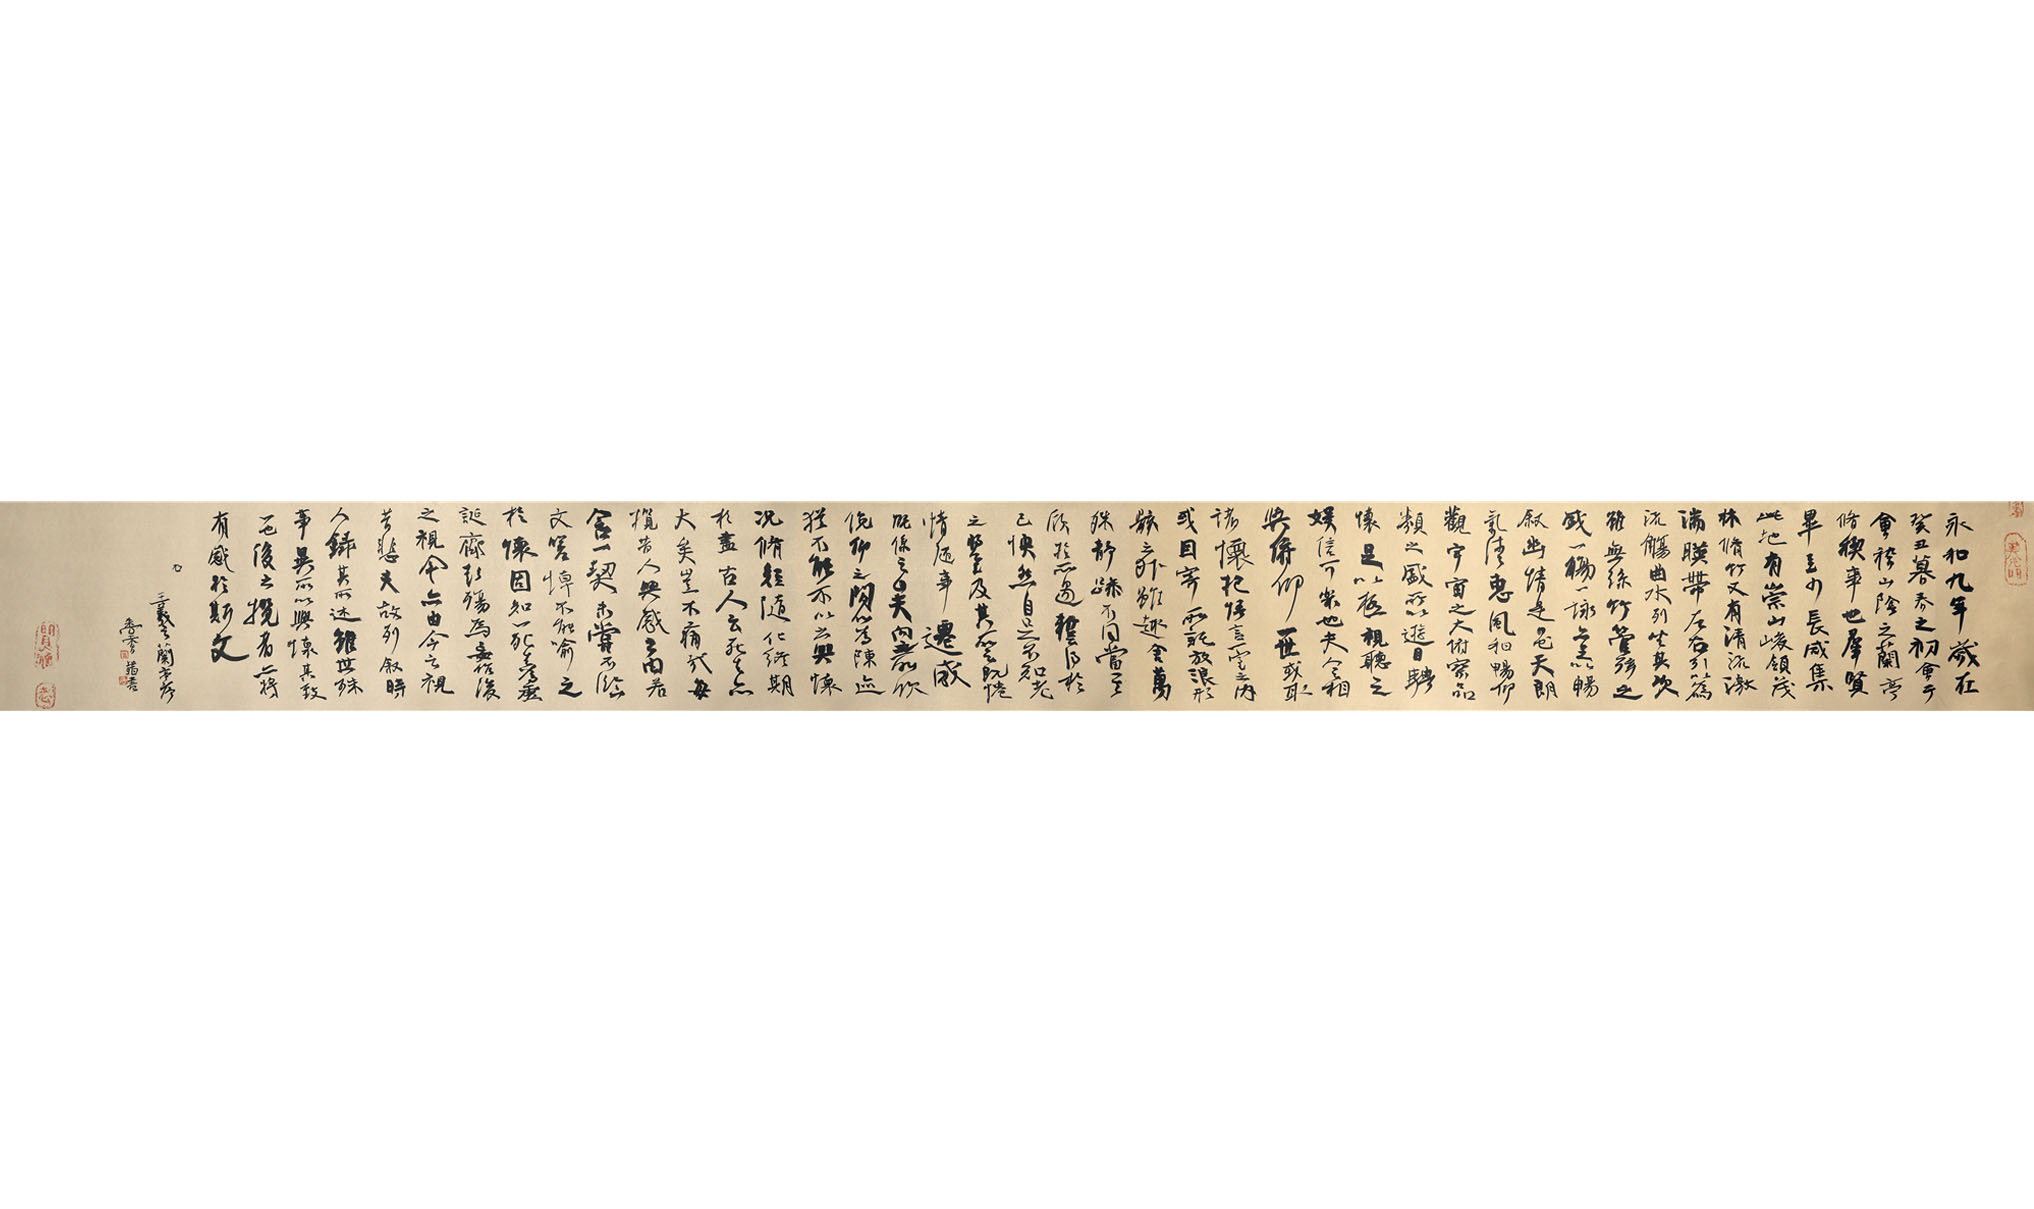 永和九年歲在
癸丑暮春之初會于
會稽山陰之蘭亭
脩稧事也羣賢
畢至少長咸集
此地有崇山峻領茂
林脩竹又有清流激
湍暎帶左右引以為
流觴曲水列坐其次
雖無絲竹管弦之
盛一觴一詠亦足以暢
叙幽情是日也天朗
氣清惠風和暢仰
觀宇宙之大俯察品
類之盛所以遊目騁
懷足以極視聽之
娛信可樂也夫人之相
與俯仰一世或取
諸懷抱悟言一室之內
或因寄所託放浪形
骸之外雖趣舍萬
殊靜躁不同當其
欣於所遇暫得於
己快然自足不知老
之將至及其所之既惓
情隨事遷感
慨係之矣向之所欣
俛仰之閒以為陳迹
猶不能不以之興懷
況脩短隨化終期
於盡古人云死生亦
大矣豈不痛哉每
攬昔人興感之由若
合一契未嘗不臨
文嗟悼不能喻之
於懷固知一死生為虛
誕齊彭殤為妄作後
之視今亦由今之視
昔悲夫故列叙時
人錄其所述雖世殊
事異所以興懷其致
一也後之攬者亦將
有感於斯文
王羲之蘭亭序